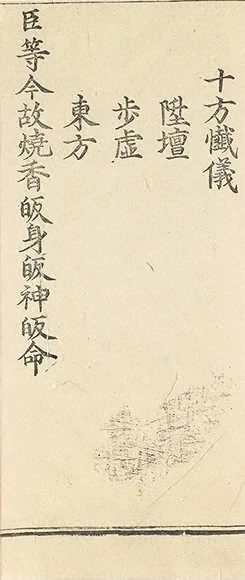 十方懺儀
陞壇
步虛
東方
臣等今故燒香皈身皈神皈命